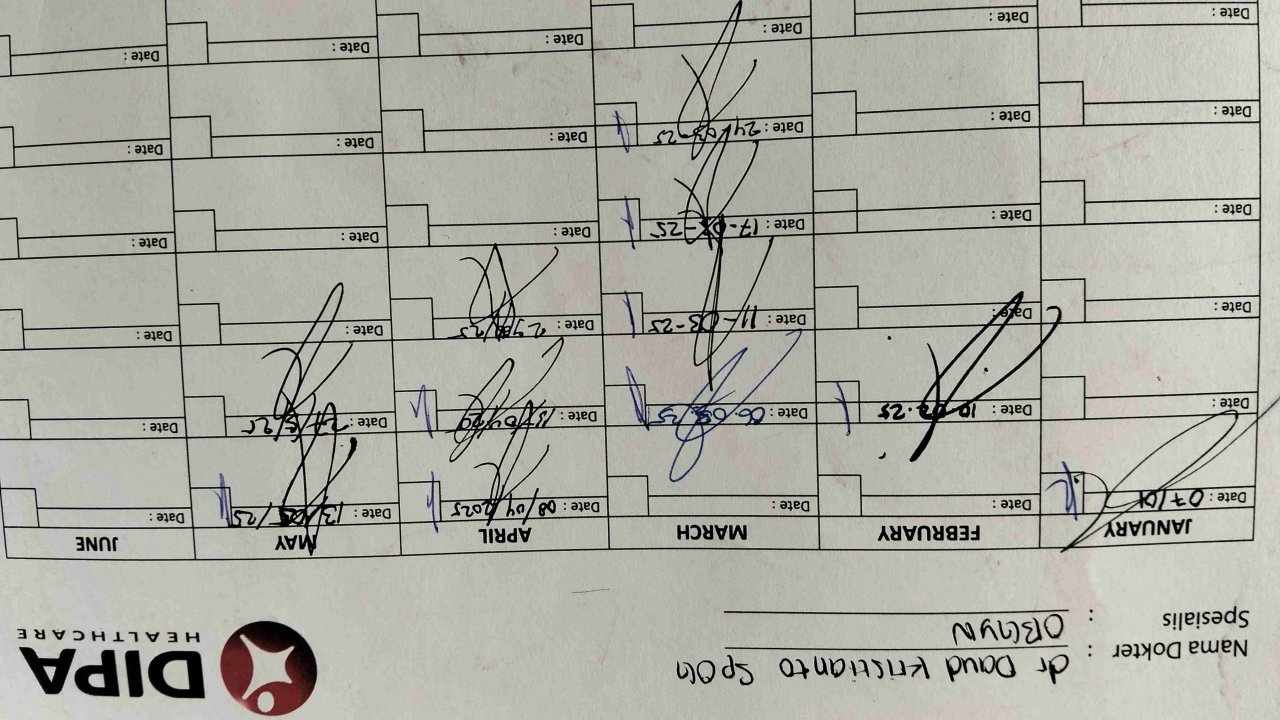 DIPA
HEALTHCARE
Nama Dokter : dr Daud Kristianto SpOG
Spesialis : OBGYN
JANUARY FEBRUARY MARCH APRIL MAY JUNE
Date: 07/01 Date: Date: Date: 08/04/2025 Date: 13/ /25 Date:
Date: Date: 10.02.25 Date: 06.03.25 Date: 15/04/25 Date: 27/5/25 Date:
Date: Date: Date: 11-03-25 Date: Date: Date:
Date: Date: Date: 17-03-25 Date: Date: Date:
Date: Date: Date: 24-03-25 Date: Date: Date:
Date: Date: Date: Date: Date: Date: